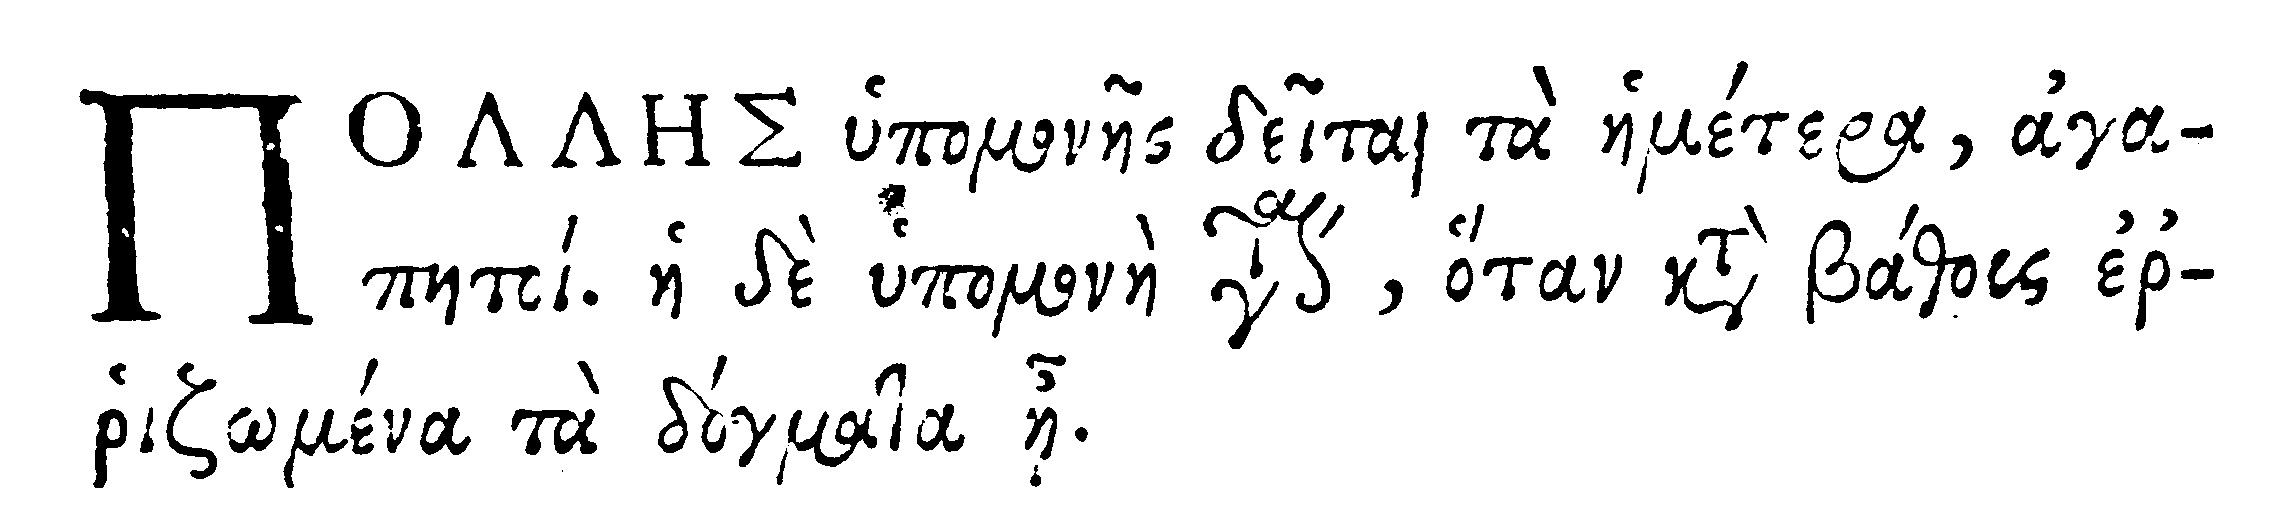 ΠΟΛΛΗΣ ὑπομονῆς δεῖται τὰ ἡμέτερα, ἀγα-
πητοί. ἡ δὲ ὑπομονὴ , ὅταν κτ̀ βάθους ἐρ-
ῥιζωμένα τὰ δόγματα ᾖ.